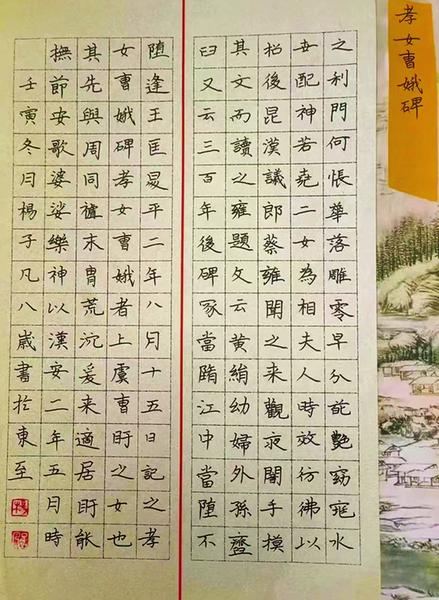 孝女曹娥碑
之利門何悵華落雕零早分葩艷窈窕水
世配神若堯二女為相夫人時效彷彿以
招後昆漢議郎蔡雍聞之來觀夜闇手摸
其文而讀之雍題文云黃絹幼婦外孫齏
臼又云三百年後碑冢當隋江中當墮不
墮逢王匡昇平二年八月十五日記之孝
女曹娥碑孝女曹娥者上虞曹盱之女也
其先與周同末胄荒沉爰来適居盱能
撫節安歌婆娑樂神以漢安二年五月時
壬寅冬月楊子凡八歲書於東至